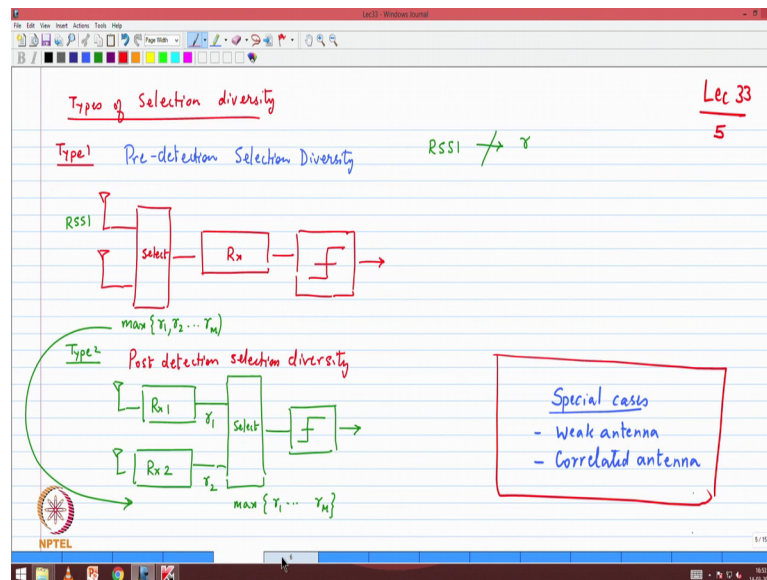 Lec33 - Windows Journal
File Edit View Insert Actions Tools Help
Page Width
B I
Types of Selection diversity
Lec 33
5
Type1 Pre-detection Selection Diversity
RSSI ↛ γ
RSSI
Select
Rx
max {γ1, γ2 ... γM)
Type2 Post detection selection diversity
Rx 1
γ1
Select
Rx 2
γ2
max {γ1 ... γM}
Special cases
- Weak antenna
- Correlated antenna
NPTEL
6
5/15
16:53